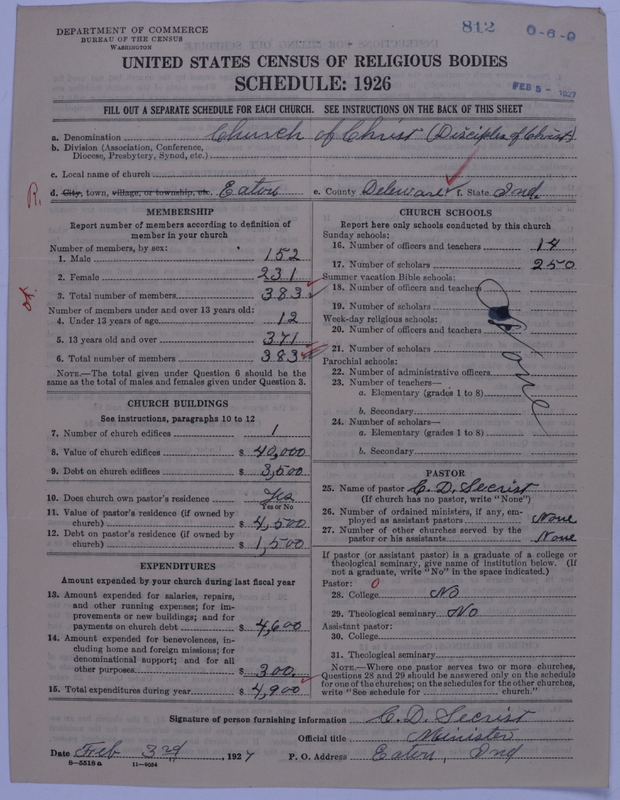 DEPARTMENT OF COMMERCE
BUREAU OF THE CENSUS
WASHINGTON
812
0-6-0
UNITED STATES CENSUS OF RELIGIOUS BODIES
SCHEDULE: 1926
FEB 5 - 1927
FILL OUT A SEPARATE SCHEDULE FOR EACH CHURCH. SEE INSTRUCTIONS ON THE BACK OF THIS SHEET
a. Denomination Church of Christ (Disciples of Christ)
b. Division (Association, Conference,
Diocese, Presbytery, Synod, etc.)
c. Local name of church
R. d. City, town, village, or township, etc. Eaton e. County Deleware f. State Ind.
MEMBERSHIP
Report number of members according to definition of
member in your church
Number of members, by sex:
1. Male 152
2. Female 231
3. Total number of members 383
Number of members under and over 13 years old:
4. Under 13 years of age 12
5. 13 years old and over 371
6. Total number of members 383
NOTE.—The total given under Question 6 should be the
same as the total of males and females given under Question 3.
CHURCH BUILDINGS
See instructions, paragraphs 10 to 12
7. Number of church edifices 1
8. Value of church edifices $ 40,000
9. Debt on church edifices $ 3,500
10. Does church own pastor's residence Yes
Yes or No
11. Value of pastor's residence (if owned by
church) $ 4,500
12. Debt on pastor's residence (if owned by
church) $ 1,500
EXPENDITURES
Amount expended by your church during last fiscal year
13. Amount expended for salaries, repairs,
and other running expenses; for im-
provements or new buildings; and for
payments on church debt $ 4,600
14. Amount expended for benevolences, in-
cluding home and foreign missions; for
denominational support; and for all
other purposes $ 300.
15. Total expenditures during year $ 4,900
CHURCH SCHOOLS
Report here only schools conducted by this church
Sunday schools:
16. Number of officers and teachers 14
17. Number of scholars 250
Summer vacation Bible schools:
18. Number of officers and teachers
19. Number of scholars
Week-day religious schools:
20. Number of officers and teachers
21. Number of scholars
None
Parochial schools:
22. Number of administrative officers
23. Number of teachers—
a. Elementary (grades 1 to 8)
b. Secondary
24. Number of scholars—
a. Elementary (grades 1 to 8)
b. Secondary
PASTOR
25. Name of pastor C. D. Secrist
(If church has no pastor, write "None")
26. Number of ordained ministers, if any, em-
ployed as assistant pastors None
27. Number of other churches served by the
pastor or his assistants None
If pastor (or assistant pastor) is a graduate of a college or
theological seminary, give name of institution below. (If
not a graduate, write "No" in the space indicated.)
Pastor: 0
28. College No
29. Theological seminary No
Assistant pastor:
30. College
31. Theological seminary
NOTE.—Where one pastor serves two or more churches,
Questions 28 and 29 should be answered only on the schedule
for one of the churches; on the schedules for the other churches,
write "See schedule for church."
Signature of person furnishing information C. D. Secrist
Official title Minister
Date Feb 3rd, 1927 P. O. Address Eaton, Ind
8-5518 a 11-9054